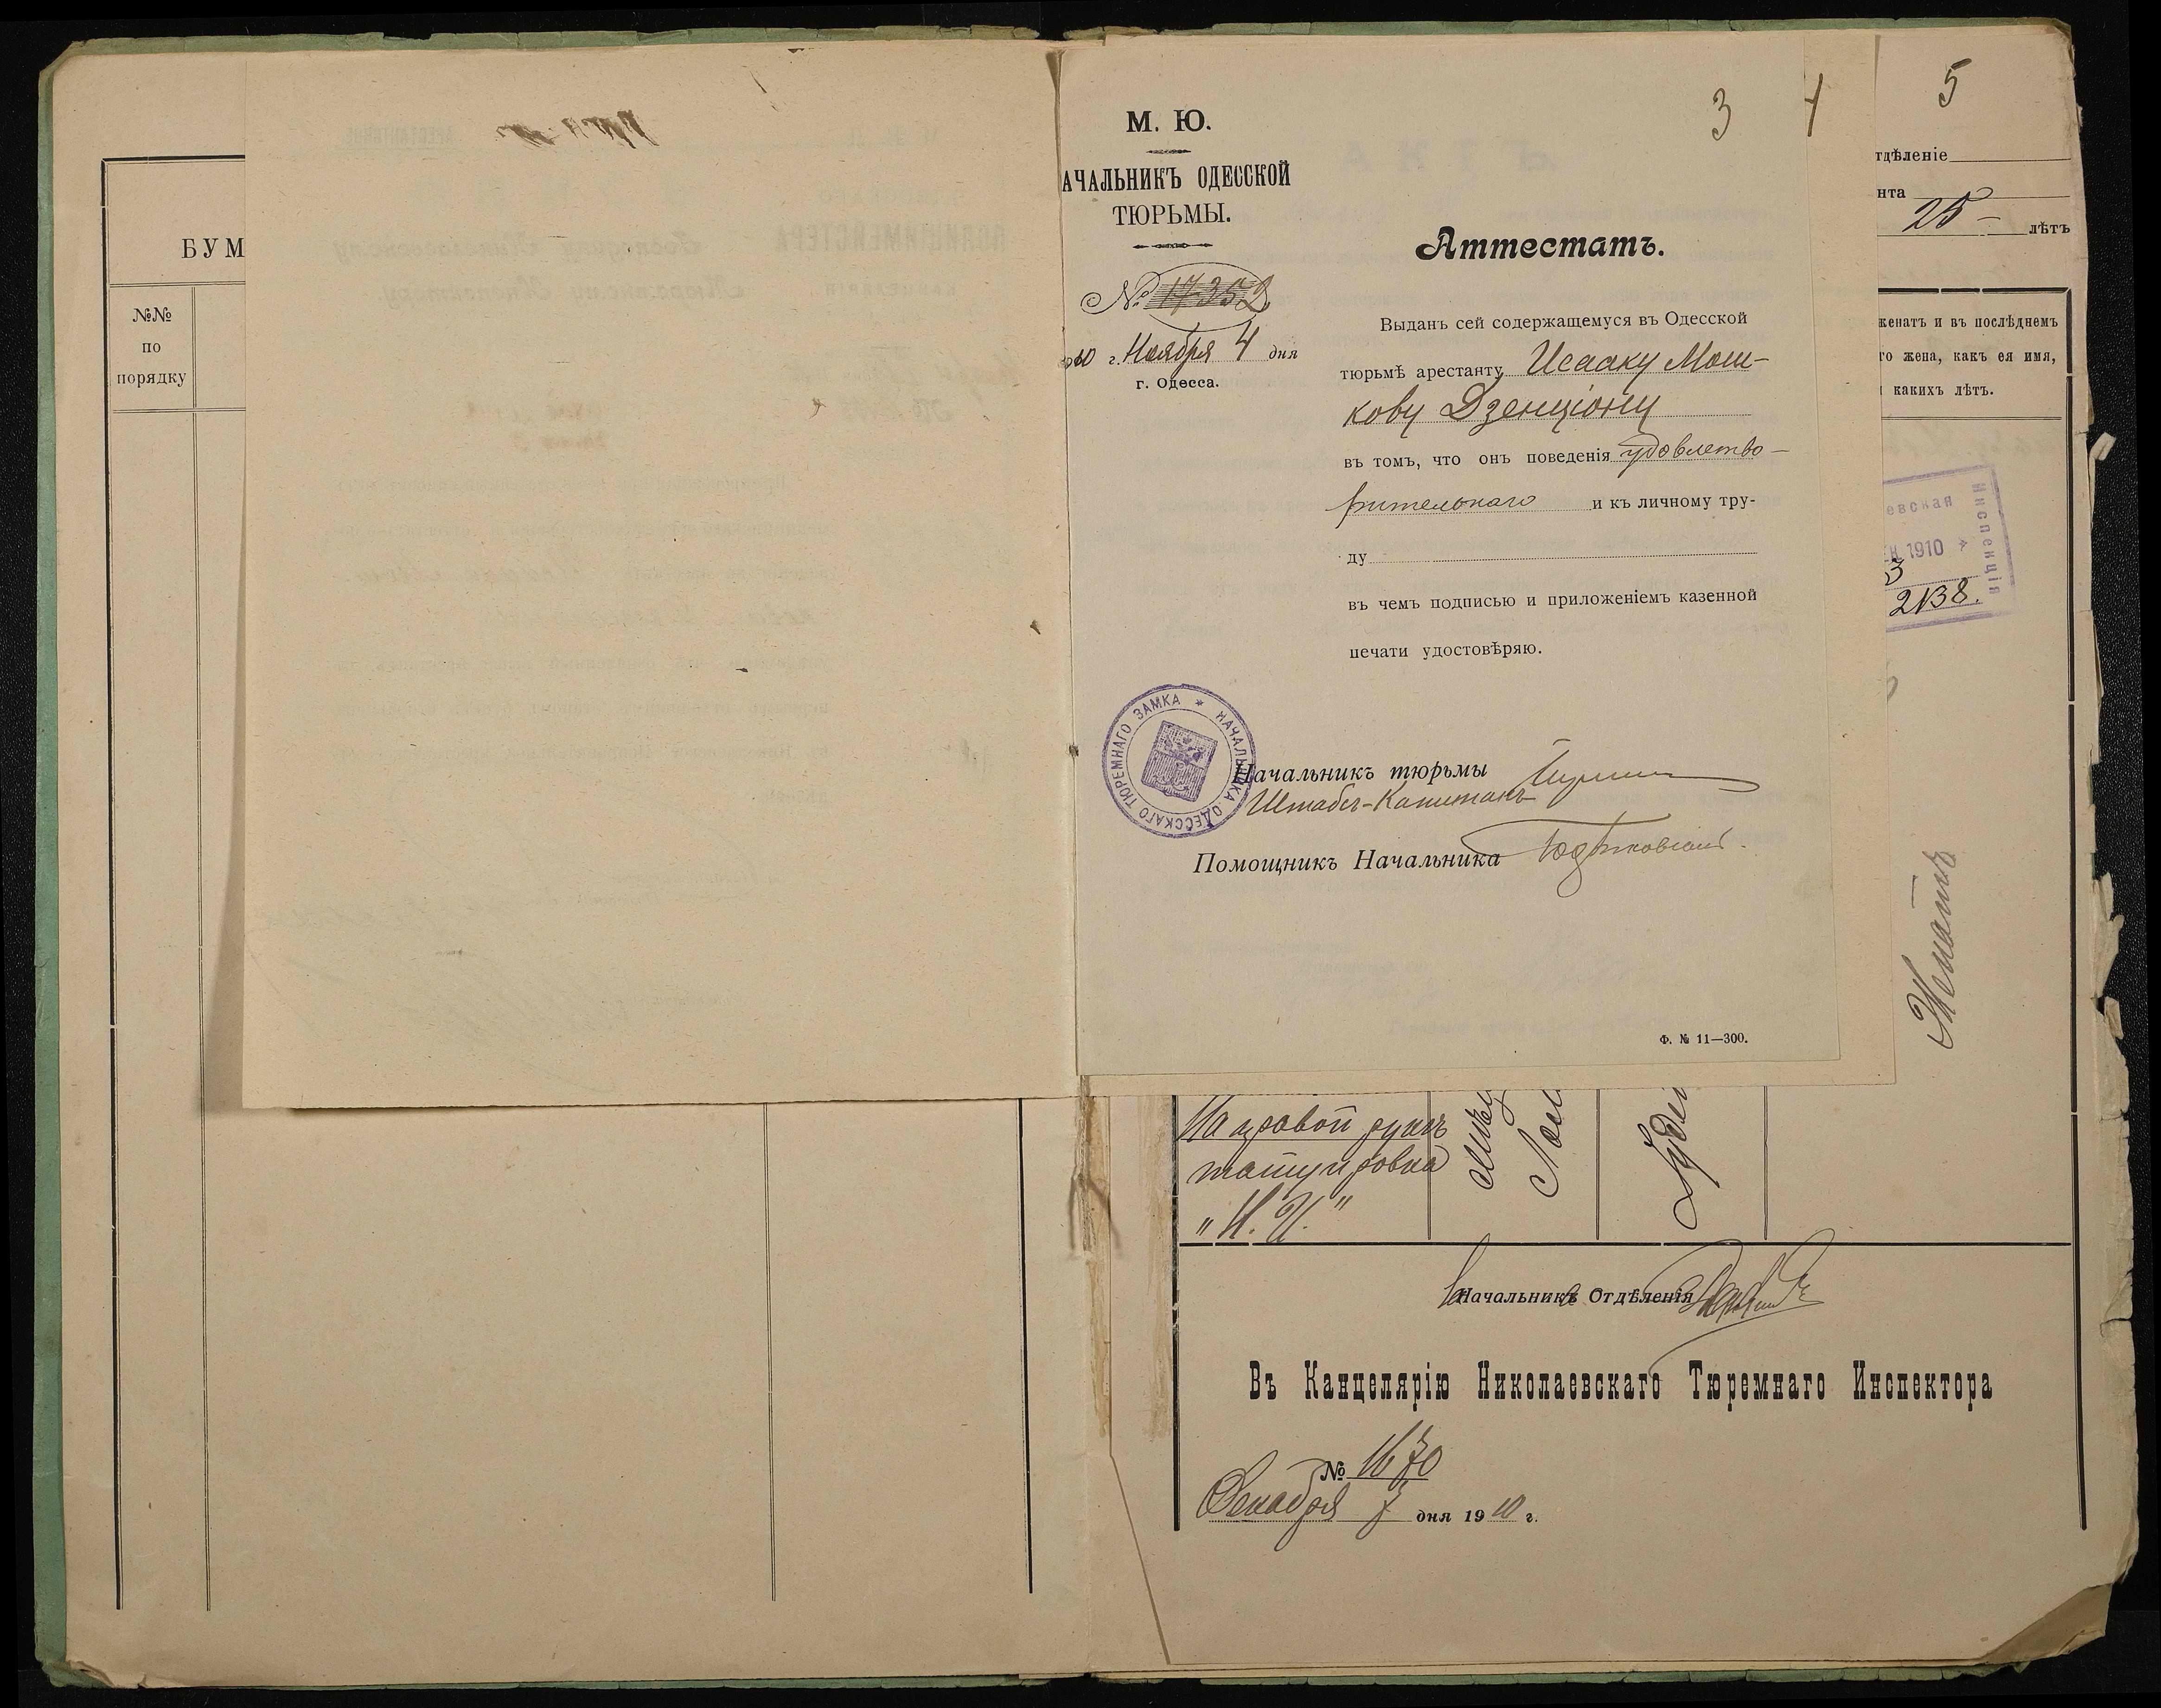 БУМ
№№
по
порядку
3
4
5
М. Ю.
АЧАЛЬНИКЪ ОДЕССКОЙ
ТЮРЬМЫ.
№ 17352
10 г. Ноября 4 дня
г. Одесса.
Аттестатъ.
Выданъ сей содержащемуся въ Одесской
тюрьмѣ арестанту Исааку Мош-
кову Дзенціону
въ томъ, что онъ поведенія удовлетво-
рительнаго и къ личному тру-
ду
въ чемъ подписью и приложеніемъ казенной
печати удостовѣряю.
НАЧАЛЬНИКА ОДЕССКАГО ТЮРЕМНАГО ЗАМКА
Начальникъ тюрьмы
Штабсъ-Капитанъ
Помощникъ Начальника
Ф. № 11—300.
тдѣленіе
нта
25 — лѣтъ
женатъ и въ послѣднемъ
го жена, какъ ея имя,
каких‍ъ лѣтъ.
евская
Инспекція
1910
3
2138.
Женатъ
На правой рукѣ
татуировка
„Н. И."
Начальникъ Отдѣленія
Въ Канцелярію Николаевскаго Тюремнаго Инспектора
№ 1670
Декабря 7 дня 1910 г.